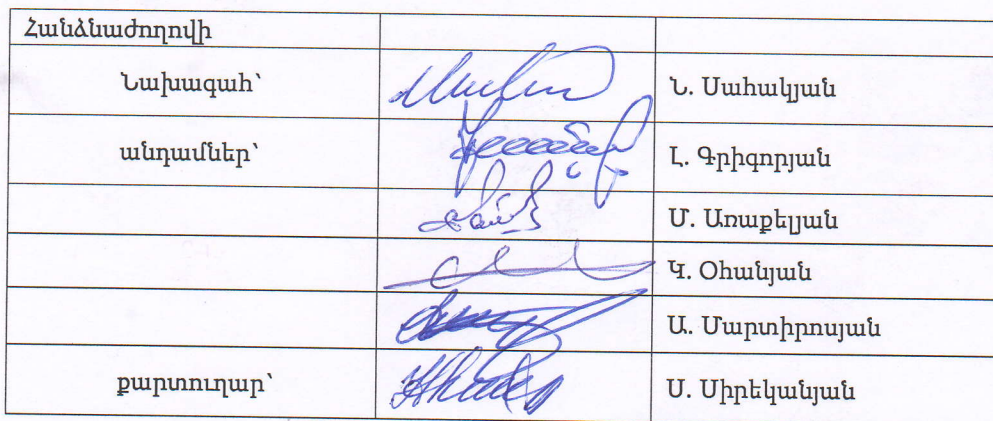 Հանձնաժողովի
Նախագահ՝ Ն. Սահակյան
անդամներ՝ Լ. Գրիգորյան
Մ. Առաքելյան
Կ. Օհանյան
Ա. Մարտիրոսյան
քարտուղար՝ Ս. Սիրեկանյան